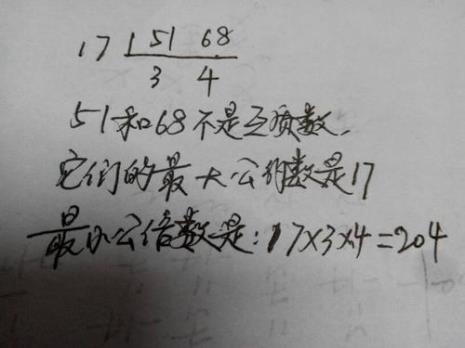 17 51 68
3 4
51和68不是互质数.
它们的最大公约数是17
最小公倍数是:17×3×4=204